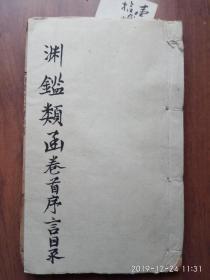 渊鑑類函卷首序言目录
2019-12-24 11:31